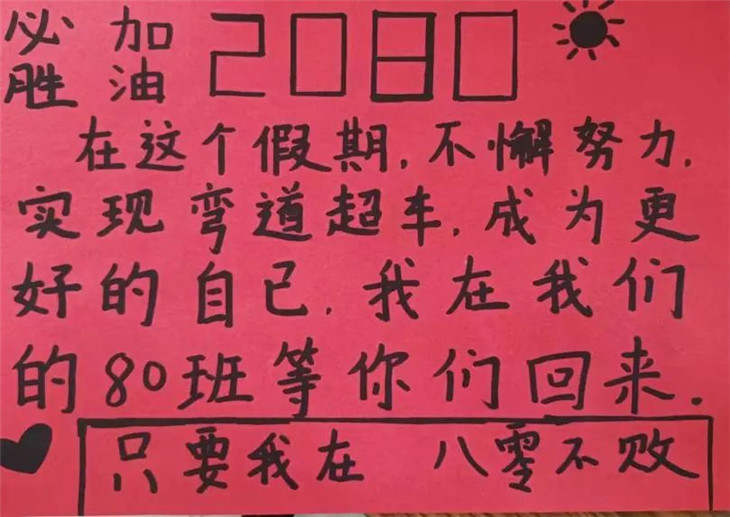 必 加 2080
胜 油
在这个假期,不懈努力,
实现弯道超车,成为更
好的自己,我在我们
的80班等你们回来.
只要我在 八零不败